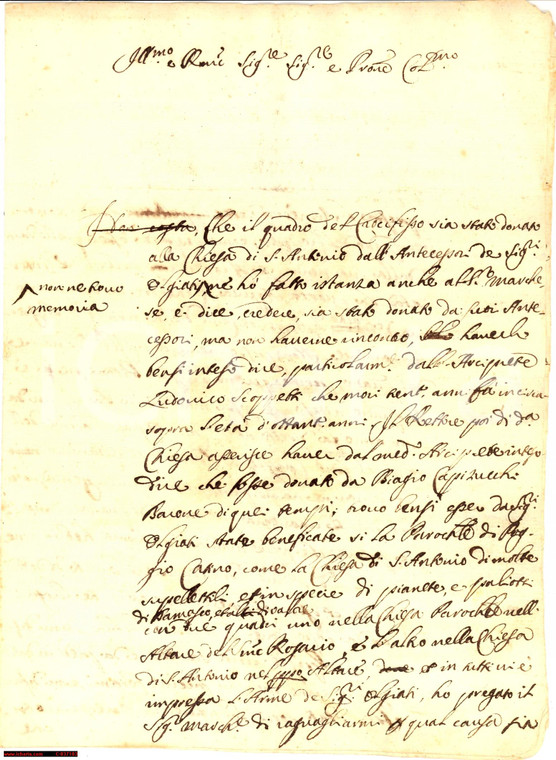 Ill.mo e Rev.mo Sig.re Sig.re e Prone Col.mo
Che il quadro del Crocifisso sia stato donato
alla Chiesa di S. Antonio dall'Antecessori de Sig.ri
Olgiati, ne ho fatto istanza anche al S.r Marche
non ne trovo
memoria
se, e dice, credere, sia stato donato da suoi Ante
cessori, ma non haverne riscontro, haverlo
bensi inteso dire, particolarm.te dall'Arciprete
Ludovico Scoppetti che mori trent'anni fà incirca
sopra l'età d'ottant'anni. Il Rettore poi di d.a
Chiesa asserisce haver dal med.o Arciprete inteso
dire che fosse donato da Biagio Capizucchi
Barone di quei tempi; trovo bensi esser da Sig.ri
Olgiati state beneficate si la Parochle di Pog
gio Catino, come la Chiesa di S. Antonio di molte
suppellettili, et in specie di pianete, e paliotti
di Damasco, et altri di
con due quadri uno nella Chiesa Parochle nell
Altare del Rosario, e l'altro nella Chiesa
di S. Antonio nel Altare, et in tutti vi è
impressa l'Arme de Sig.ri Olgiati, ho pregato il
Sig.r March.e di raguagliarmi qual causa sia